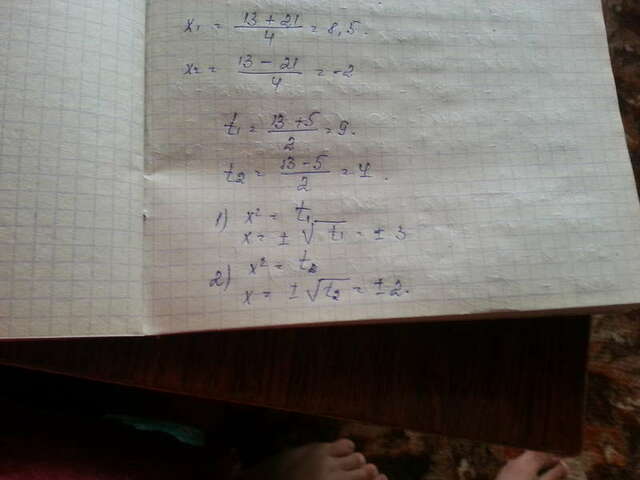 x₁ = (13 + 21)/4 = 8,5.
x₂ = (13 − 21)/4 = −2
t₁ = (13 + 5)/2 = 9.
t₂ = (13 − 5)/2 = 4.
1) x² = t₁
x = ± √t₁ = ± 3
2) x² = t₂
x = ± √t₂ = ± 2.